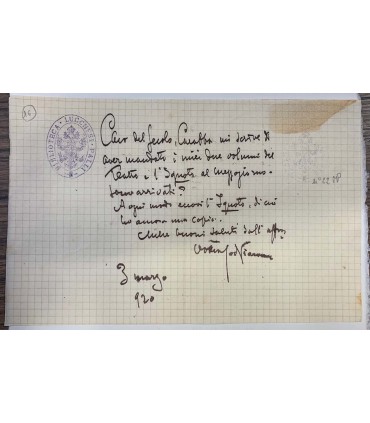 36
BIBLIOTECA LUCCHESI-PALLI
Caro del Secolo, Carabba mi scrive di
aver mandato i miei due volumi del
Teatro e l'Ignoto al
sono arrivati?
A ogni modo eccovi l'Ignoto, di cui
ho ancora una copia.
buoni saluti dall'aff.
3 marzo
920